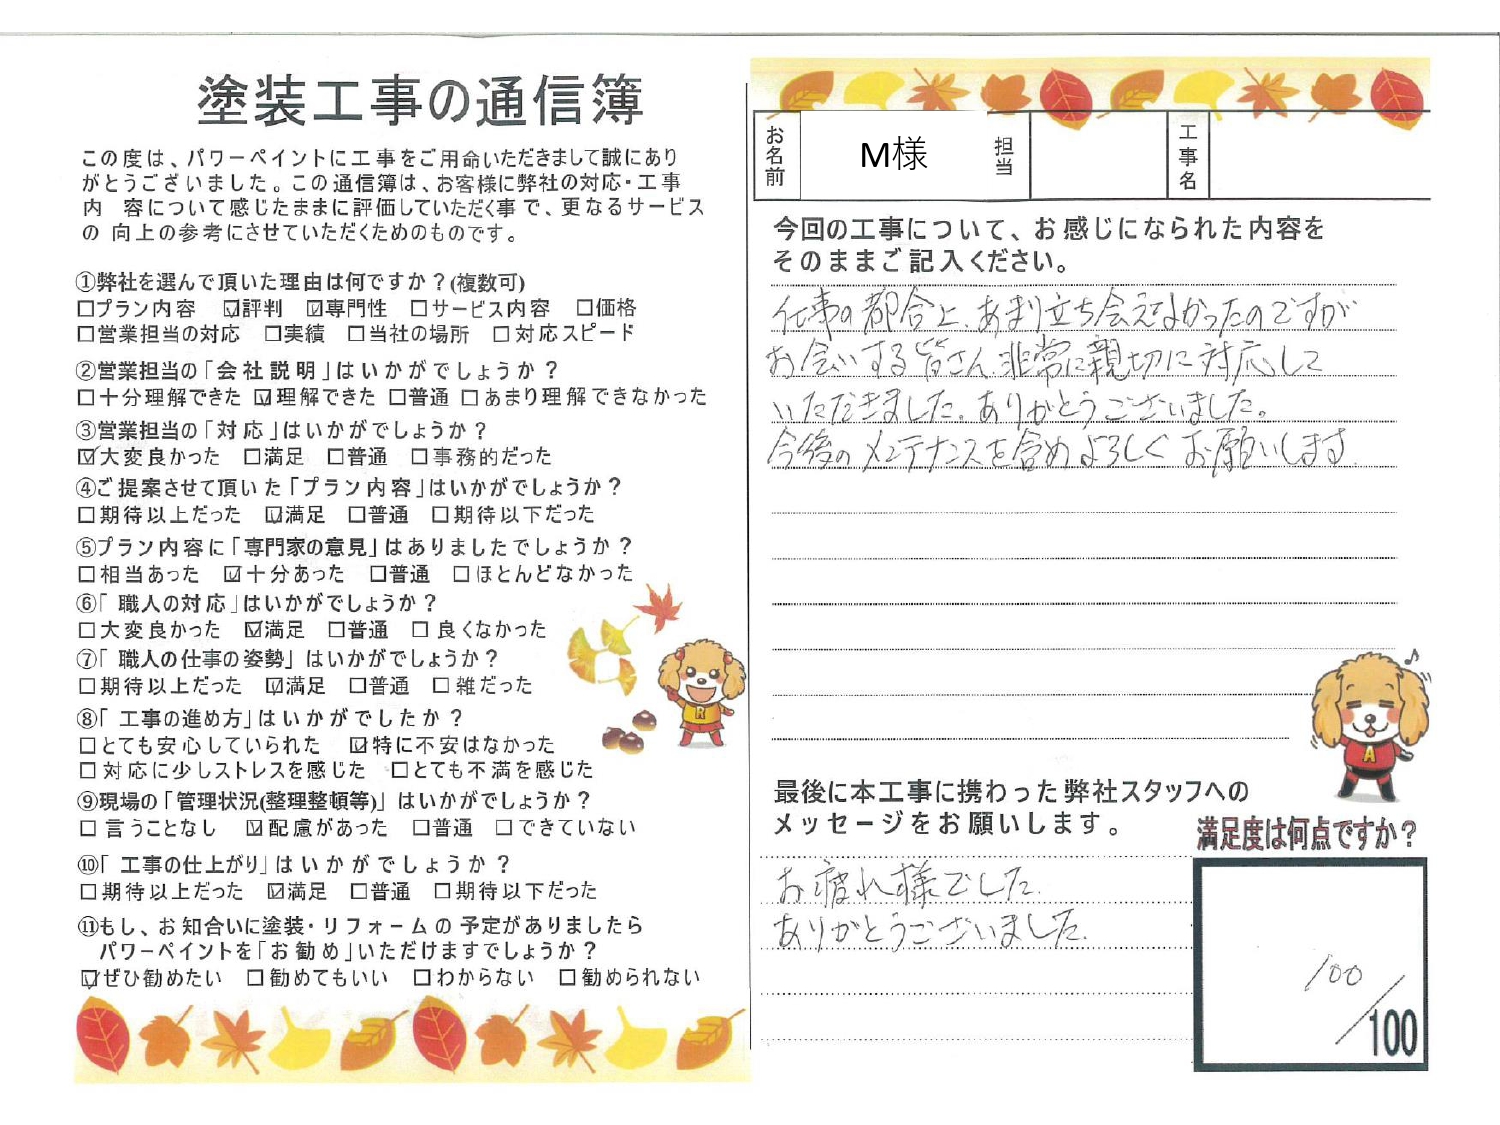 塗装工事の通信簿
この度は、パワーペイントに工事をご用命いただきまして誠にあり
がとうございました。この通信簿は、お客様に弊社の対応・工事
内 容について感じたままに評価していただく事で、更なるサービス
の 向上の参考にさせていただくためのものです。
①弊社を選んで頂いた理由は何ですか？(複数可)
□プラン内容 ☑評判 ☑専門性 □サービス内容 □価格
□営業担当の対応 □実績 □当社の場所 □対応スピード
②営業担当の「会社説明」はいかがでしょうか？
□十分理解できた ☑理解できた □普通 □あまり理解できなかった
③営業担当の「対応」はいかがでしょうか？
☑大変良かった □満足 □普通 □事務的だった
④ご提案させて頂いた「プラン内容」はいかがでしょうか？
□期待以上だった ☑満足 □普通 □期待以下だった
⑤プラン内容に「専門家の意見」はありましたでしょうか？
□相当あった ☑十分あった □普通 □ほとんどなかった
⑥「職人の対応」はいかがでしょうか？
□大変良かった ☑満足 □普通 □良くなかった
⑦「職人の仕事の姿勢」はいかがでしょうか？
□期待以上だった ☑満足 □普通 □雑だった
⑧「工事の進め方」はいかがでしたか？
□とても安心していられた ☑特に不安はなかった
□対応に少しストレスを感じた □とても不満を感じた
⑨現場の「管理状況(整理整頓等)」はいかがでしょうか？
□言うことなし ☑配慮があった □普通 □できていない
⑩「工事の仕上がり」はいかがでしょうか？
□期待以上だった ☑満足 □普通 □期待以下だった
⑪もし、お知合いに塗装・リフォームの予定がありましたら
パワーペイントを「お勧め」いただけますでしょうか？
☑ぜひ勧めたい □勧めてもいい □わからない □勧められない
お名前 M様 担当 工事名
今回の工事について、お感じになられた内容を
そのままご記入ください。
仕事の都合上、あまり立ち会えなかったのですが
お会いする皆さん、非常に親切に対応して
いただきました。ありがとうございました。
今後のメンテナンスを含めよろしくお願いします
最後に本工事に携わった弊社スタッフへの
メッセージをお願いします。
お疲れ様でした。
ありがとうございました。
満足度は何点ですか？
100/100
R
A